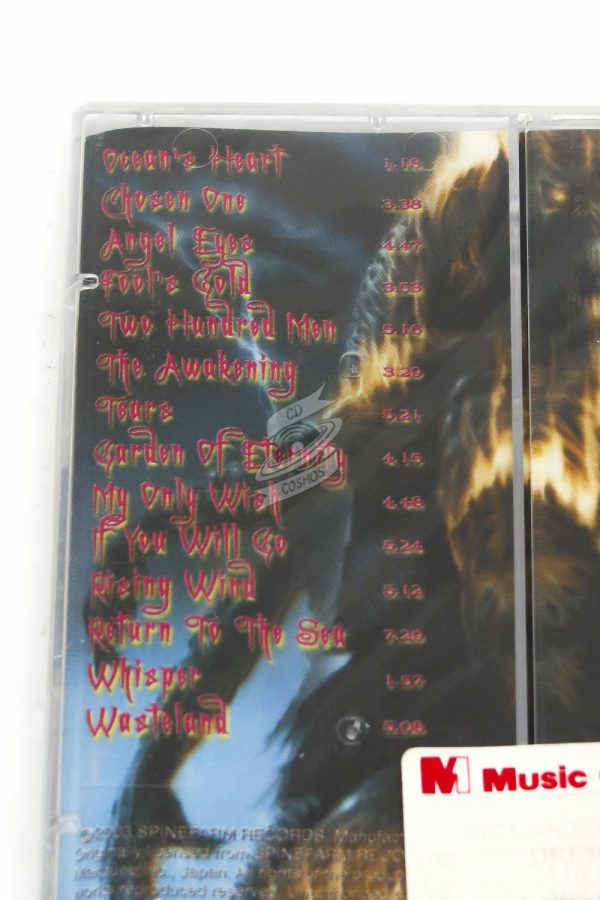 Ocean's Heart 1.18.
Chosen One 3.38
Angel Eyes 4.47
Fool's Gold 3.53
Two Hundred Men 5.10
The Awakening 3.23
Tears 5.21
Garden Of Eternity 4.15
My Only Wish 4.48
If You Will Go 5.24
Rising Wind 5.12
Return To The Sea 7.29
Whisper 1.37
Wasteland 5.08
CD
COSMOS
M Music
©2003 SPINEFARM RECORDS. Manufac
Originally licensed from SPINEFARM RECO
Marquee Inc., Japan. All rights of the produc
works reproduced reserved.